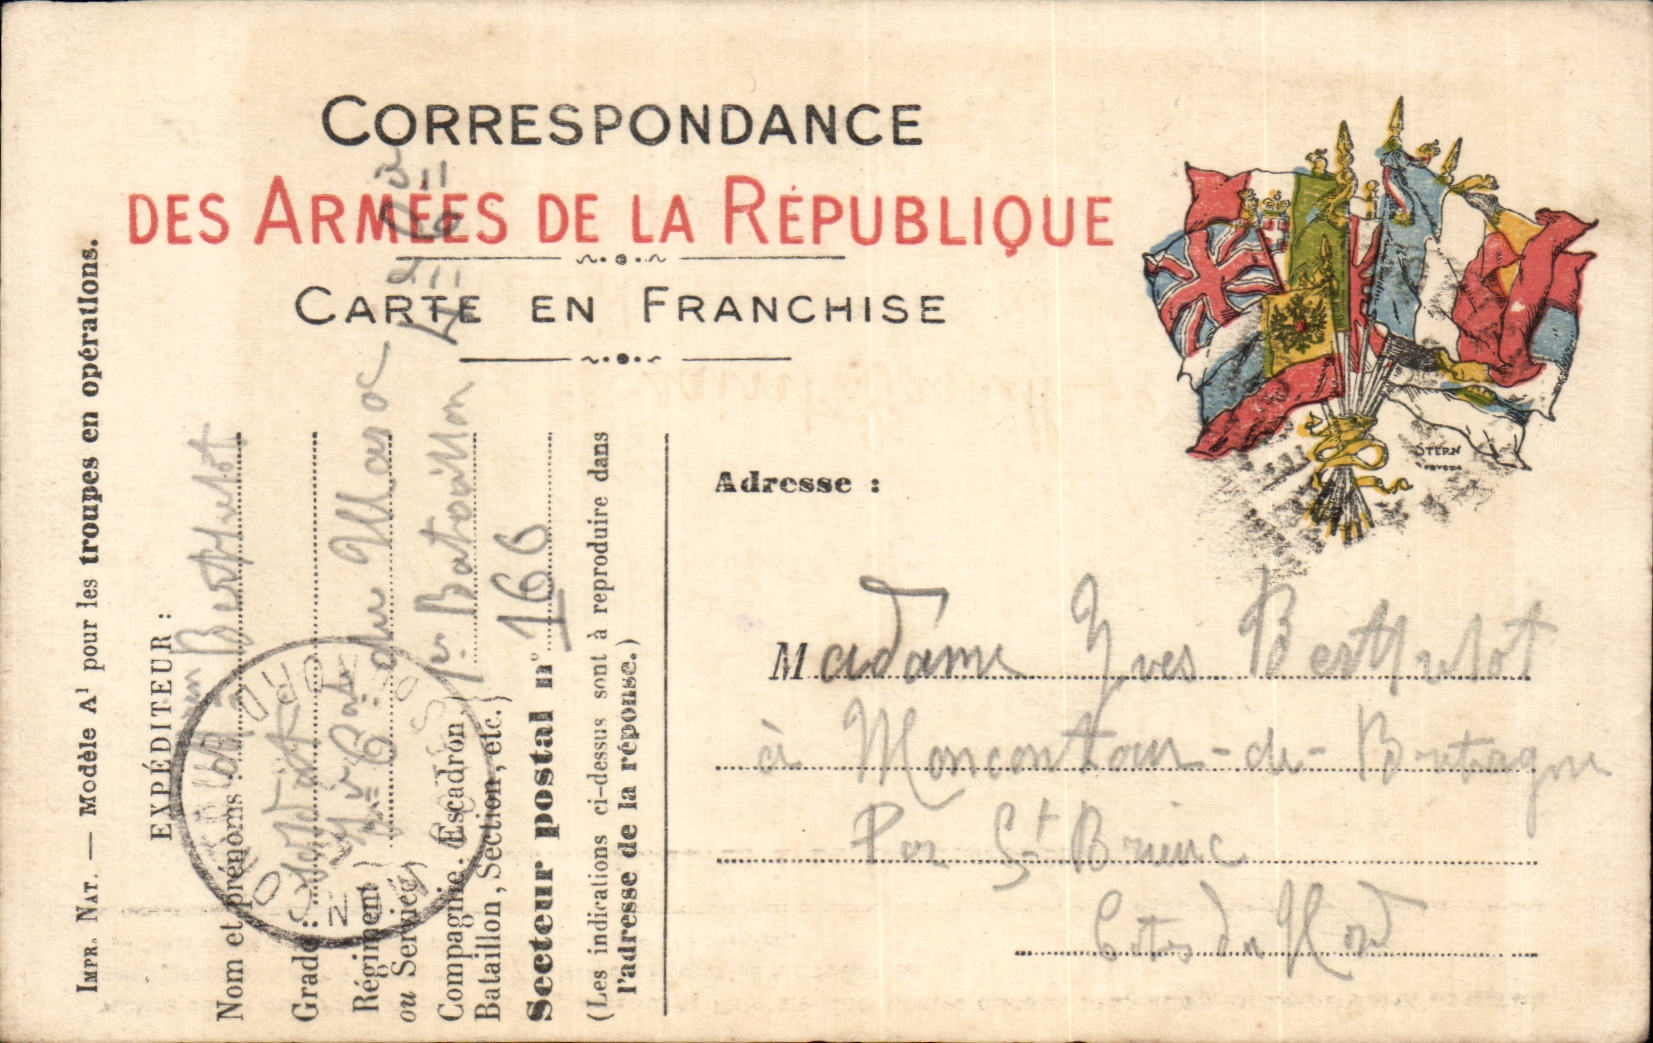 CORRESPONDANCE
DES ARMÉES DE LA RÉPUBLIQUE
CARTE EN FRANCHISE
IMPR. NAT. — MODÈLE A¹ pour les troupes en opérations.
EXPÉDITEUR :
Nom et prénoms : Berthelot
Grade : Soldat
Régiment ou Service du Maroc
Compagnie, Escadron, Bataillon, Section, etc. 1er Bataillon
Secteur postal n° 166
(Les indications ci-dessus sont à reproduire dans
l'adresse de la réponse.)
STERN
Adresse :
Madame Yves Berthelot
à Moncontour-de-Bretagne
Par St Brieuc
Cotes du Nord